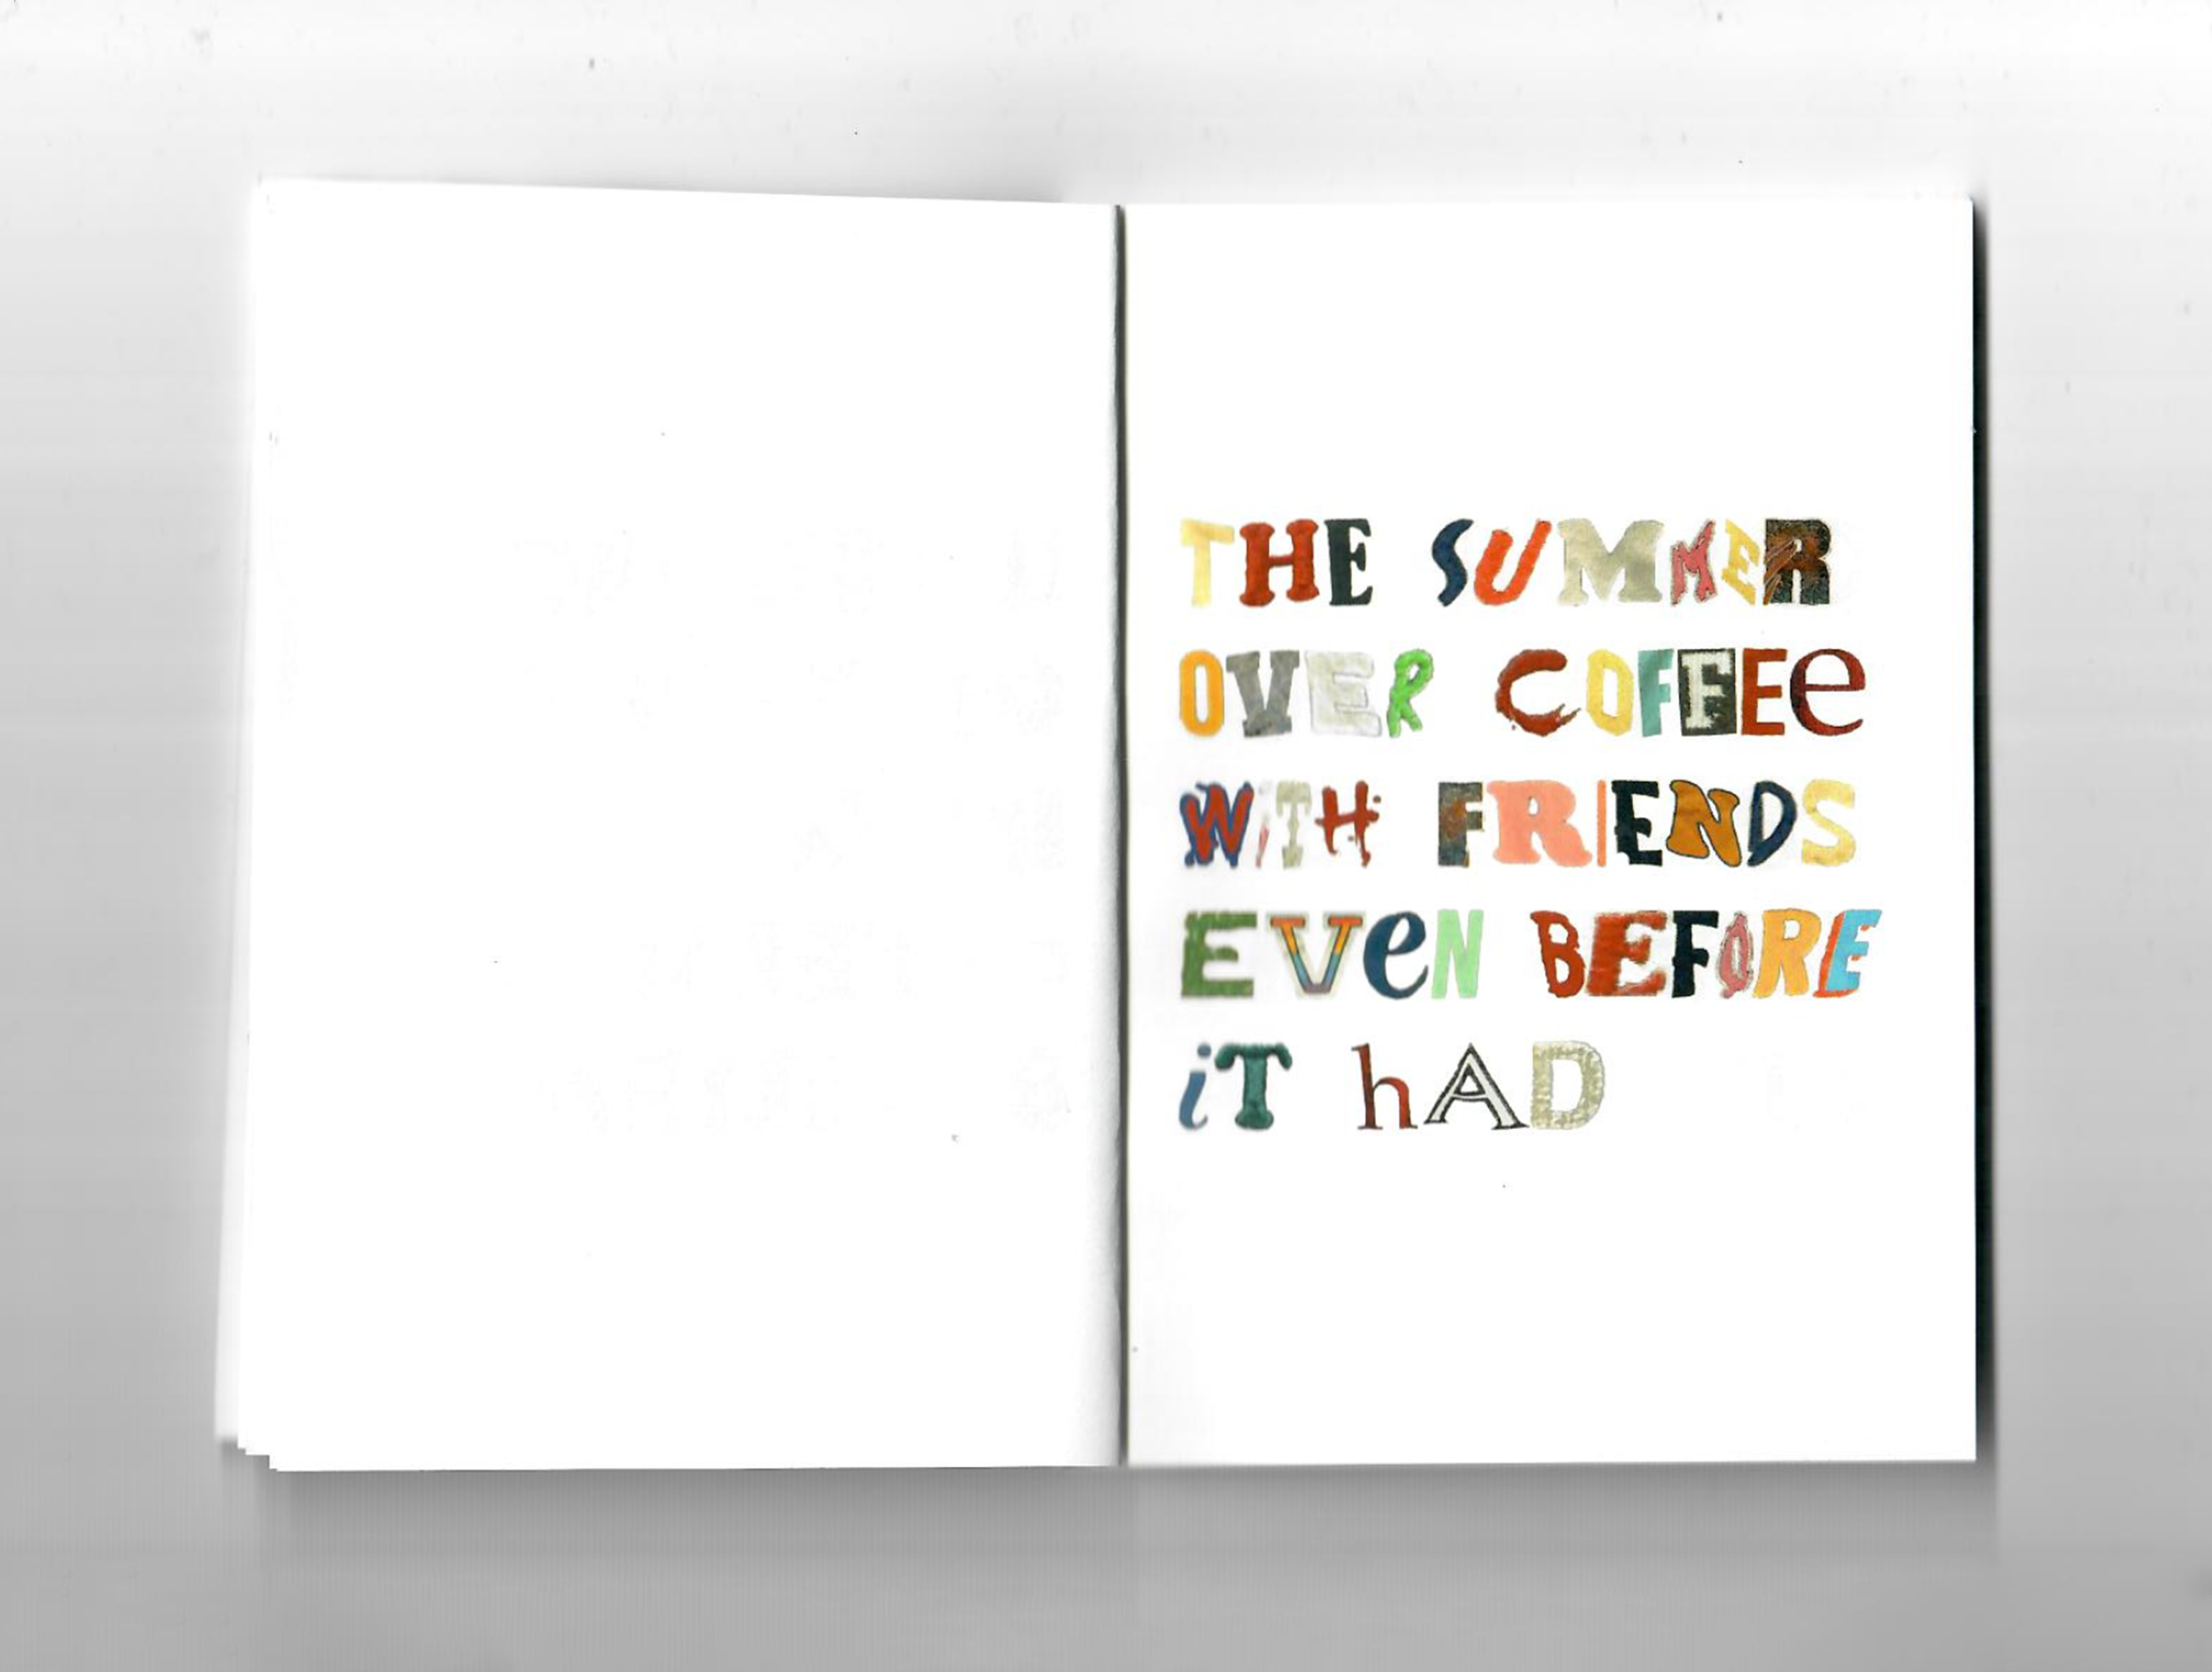 THE SUMMER
OVER COFFEe
WiTH FRIENDS
EVeN BEFORE
iT hAD